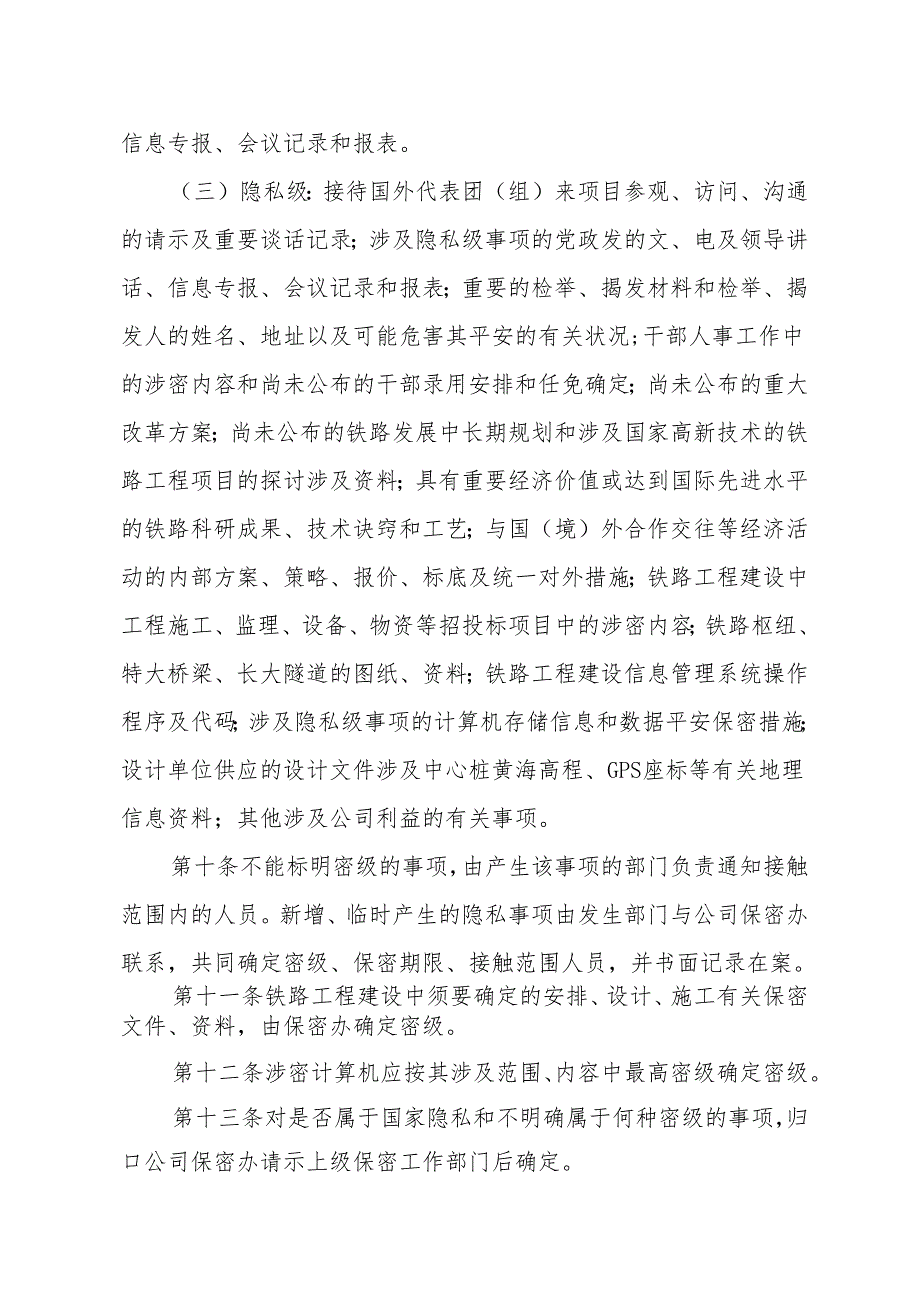 信息专报、会议记录和报表。
（三）隐私级：接待国外代表团（组）来项目参观、访问、沟通
的请示及重要谈话记录；涉及隐私级事项的党政发的文、电及领导讲
话、信息专报、会议记录和报表；重要的检举、揭发材料和检举、揭
发人的姓名、地址以及可能危害其平安的有关状况;干部人事工作中
的涉密内容和尚未公布的干部录用安排和任免确定；尚未公布的重大
改革方案；尚未公布的铁路发展中长期规划和涉及国家高新技术的铁
路工程项目的探讨涉及资料；具有重要经济价值或达到国际先进水平
的铁路科研成果、技术诀窍和工艺；与国（境）外合作交往等经济活
动的内部方案、策略、报价、标底及统一对外措施；铁路工程建设中
工程施工、监理、设备、物资等招投标项目中的涉密内容；铁路枢纽、
特大桥梁、长大隧道的图纸、资料；铁路工程建设信息管理系统操作
程序及代码；涉及隐私级事项的计算机存储信息和数据平安保密措施；
设计单位供应的设计文件涉及中心桩黄海高程、GPS座标等有关地理
信息资料；其他涉及公司利益的有关事项。
第十条不能标明密级的事项，由产生该事项的部门负责通知接触
范围内的人员。新增、临时产生的隐私事项由发生部门与公司保密办
联系，共同确定密级、保密期限、接触范围人员，并书面记录在案。
第十一条铁路工程建设中须要确定的安排、设计、施工有关保密
文件、资料，由保密办确定密级。
第十二条涉密计算机应按其涉及范围、内容中最高密级确定密级。
第十三条对是否属于国家隐私和不明确属于何种密级的事项，归
口公司保密办请示上级保密工作部门后确定。